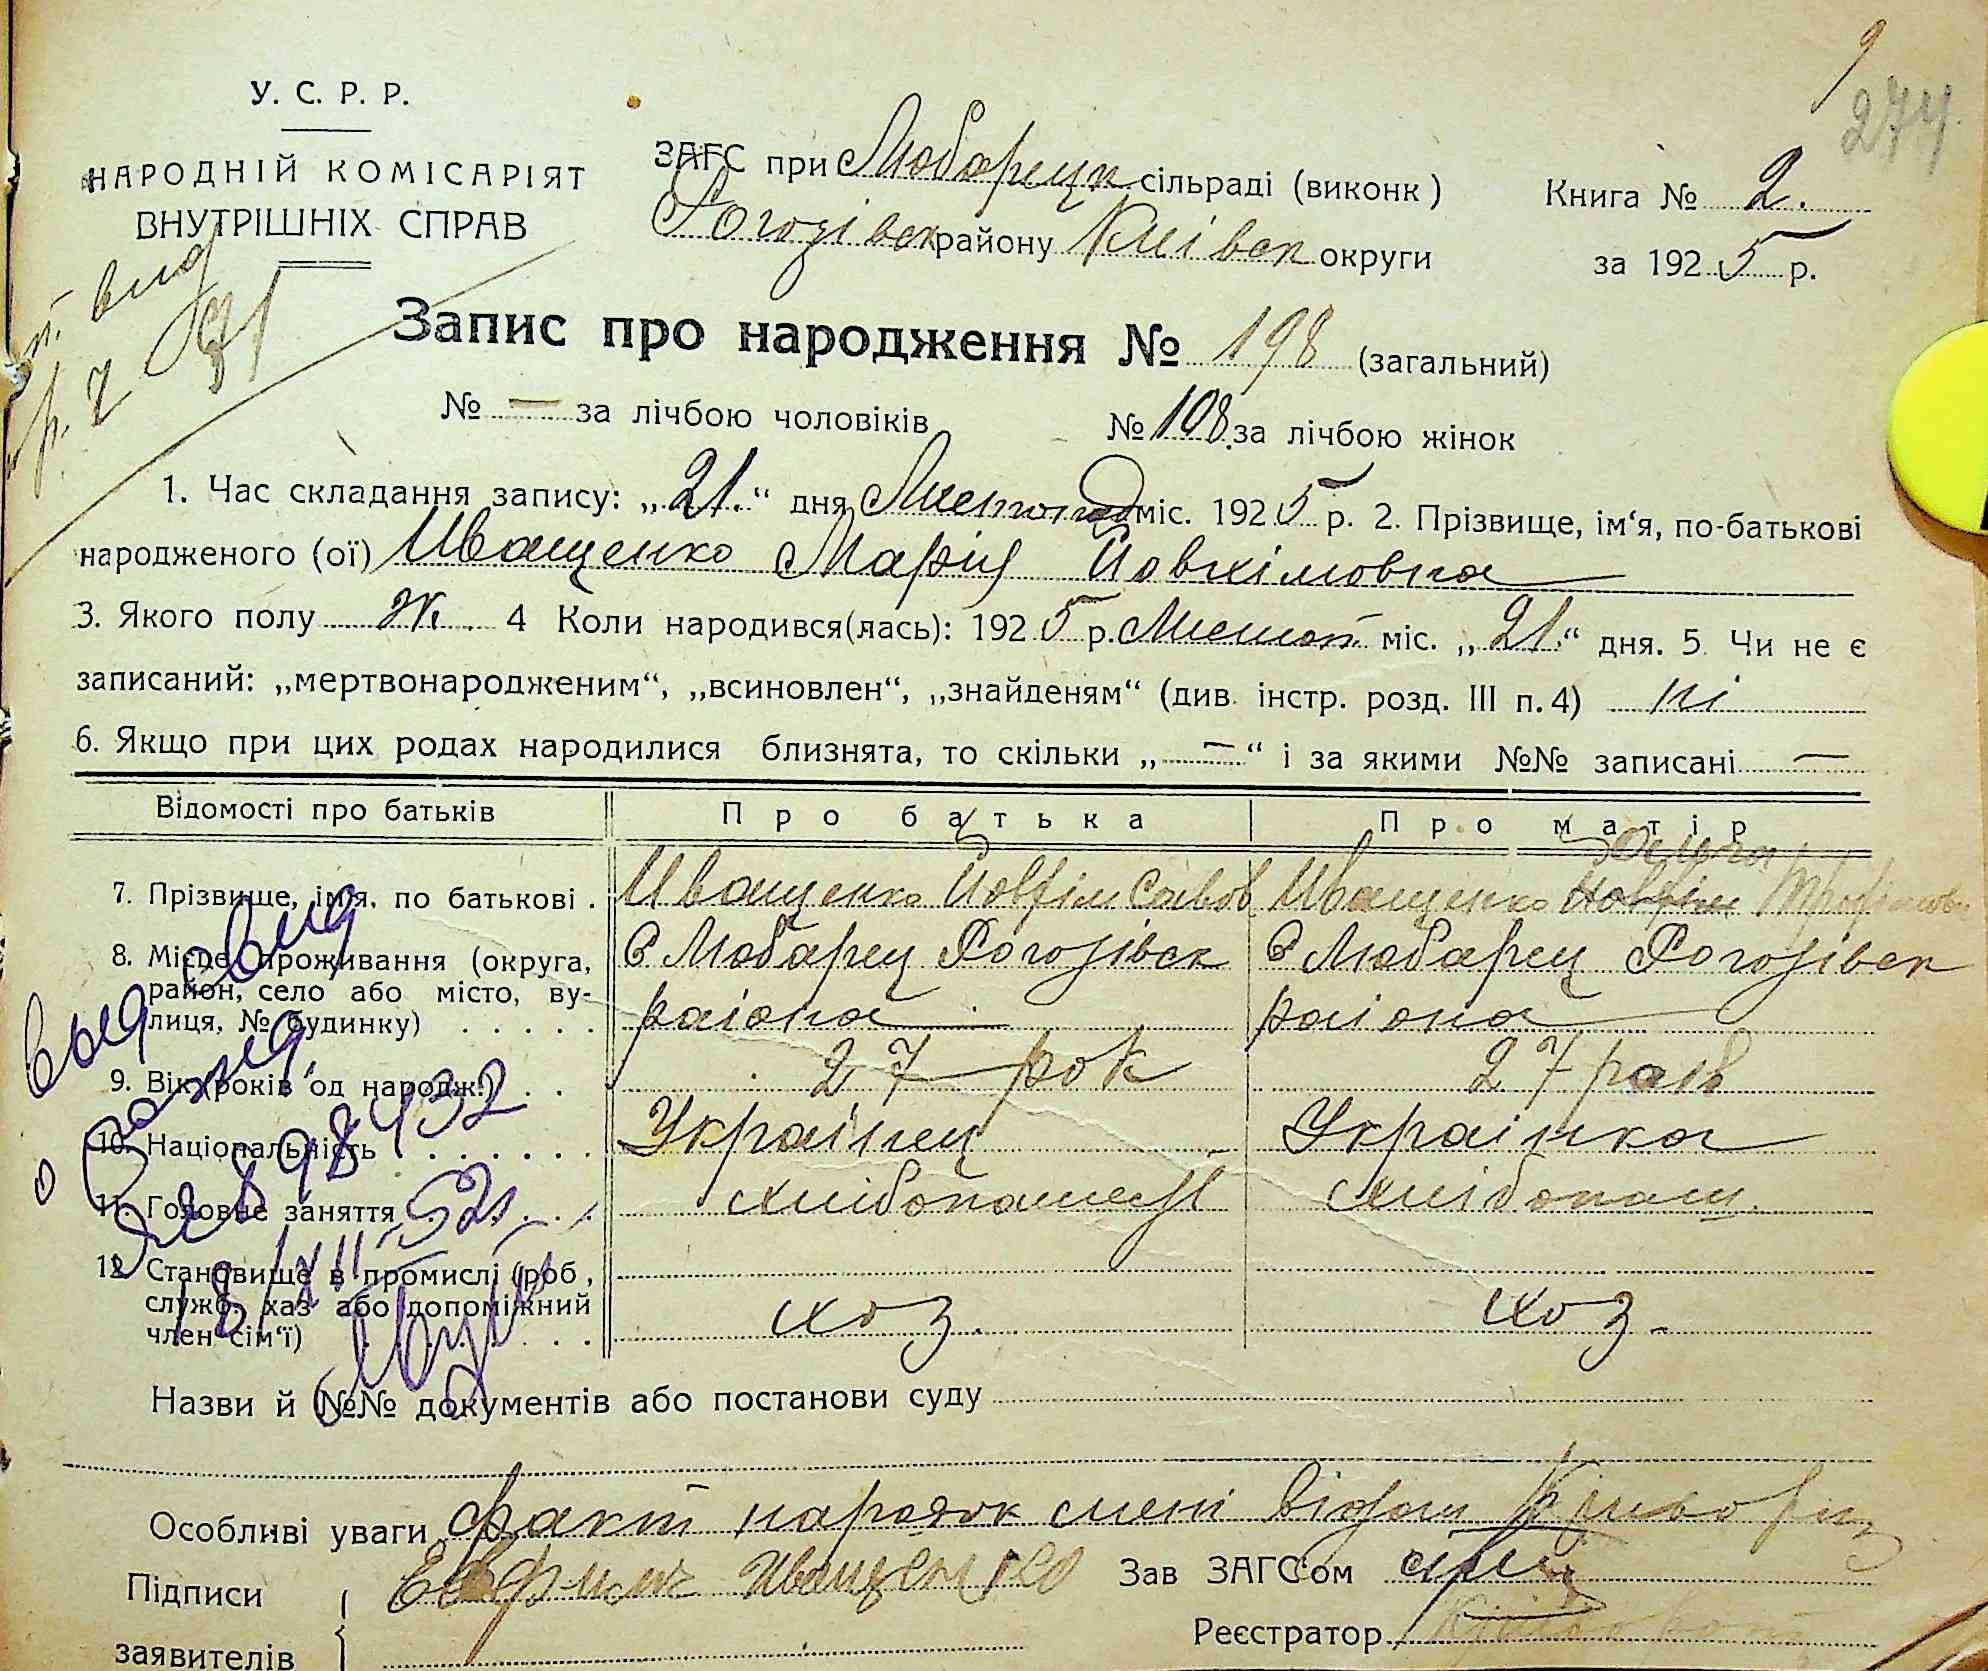 9
274
У. С. Р. Р.
НАРОДНІЙ КОМІСАРІЯТ
ВНУТРІШНІХ СПРАВ
ЗАГС при Любарецк сільраді (виконк)
Рогозівск району Київск округи
Книга № 2.
за 1925 р.
Запис про народження № 198 (загальний)
№ — за лічбою чоловіків № 108 за лічбою жінок
1. Час складання запису: „21.“ дня Листопад міс. 1925 р. 2. Прізвище, ім‘я, по-батькові
народженого (ої) Иващенко Марія Йовхімовна
3. Якого полу ж. 4 Коли народився(лась): 1925 р. Листоп міс. „21.“ дня. 5. Чи не є
записаний: „мертвонародженим“, „всиновлен“, „знайденям“ (див. інстр. розд. III п. 4) ні
6. Якщо при цих родах народилися близнята, то скільки „—“ і за якими №№ записані —
Відомості про батьків Про батька Про матір
7. Прізвище, ім‘я, по батькові . Иващенко Йовхім Савов Иващенко
8. Місце проживання (округа, район, село або місто, вулиця, № будинку) . . . . . С Любарец Рогозівск С Любарец Рогозівск
раіона раіона
9. Вік (років од народж.) . . 27 рок 27 рків
10. Національність . . . . . . . Украінец Украінка
11. Головне заняття . . . . . хлібопашест хлібопаш.
12. Становище в промислі (роб, служб. хаз або допоміжний член сім‘ї) . . . . . хоз. хоз.
выд свид
о рожд
18/XII-52г.
Назви й №№ документів або постанови суду
Особливі уваги факт нарояок
Підписи
заявителів
Иващенко
Зав ЗАГСом
Реєстратор